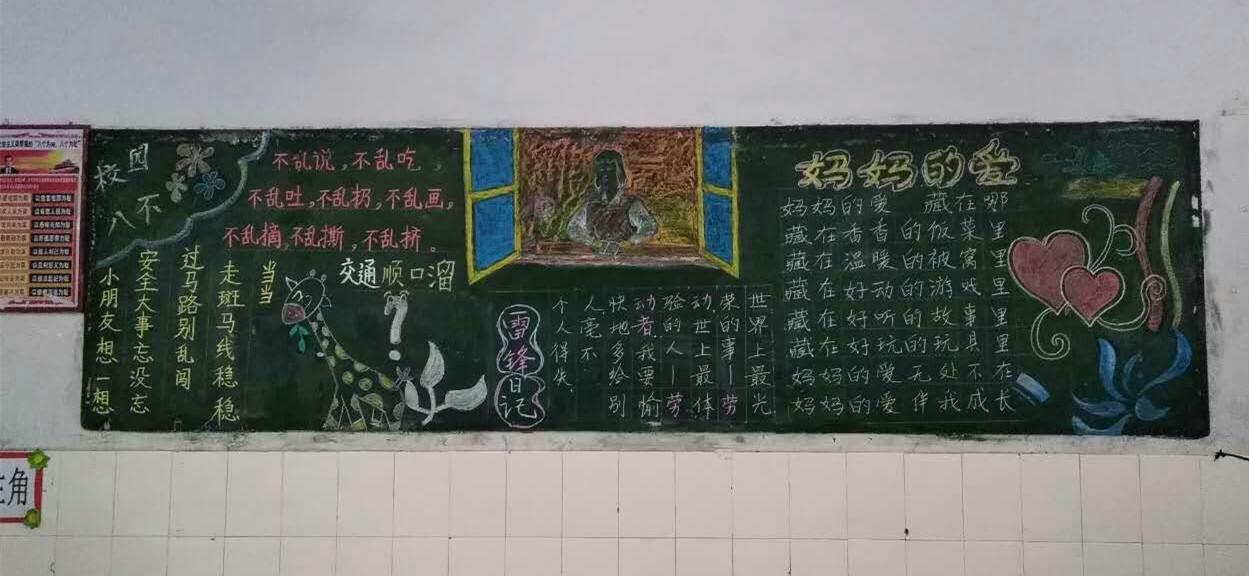 校园
八不
不乱说，不乱吃，
不乱吐，不乱扔，不乱画。
不乱摘，不乱撕，不乱挤。
交通顺口溜
当当
走斑马线稳稳
过马路别乱闯
安全大事忘没忘
小朋友想一想
雷锋日记
世界上最光
荣的事—劳
动，世上最体
验的人—劳
动者，我要愉
快地多给别
人，毫不
个人得失。
妈妈的爱
妈妈的爱 藏在哪
藏在香香的饭菜里
藏在温暖的被窝里
藏在好动的游戏里
藏在好听的故事里
藏在好玩的玩具里
妈妈的爱无处不在
妈妈的爱伴我成长
角